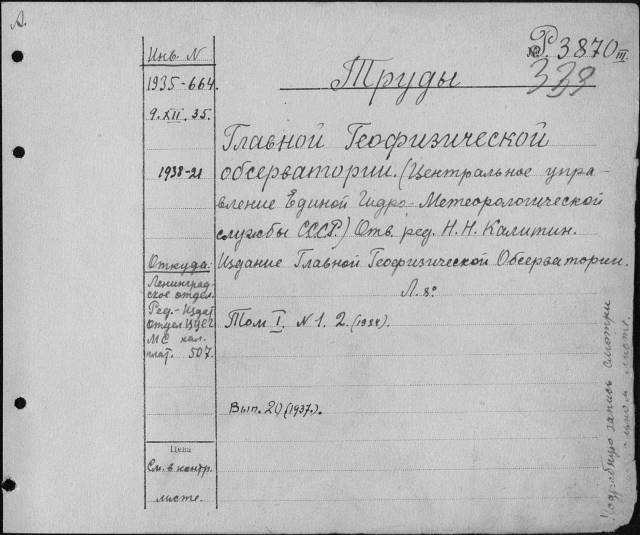 А.
Инв. N
1935-664.
9.XII.35.
1938-21
Откуда:
Ленинград-
ское отдел.
Ред.-Издат
отдел ЦУЕГ
МС кал.
плат. 507.
Цена
См. в контр.
листе.
№ Р. 3870 III.
339
Труды
Главной Геофизической
обсерватории. (Центральное упра-
вление Единой Гидро-Метеорологической
службы СССР.) Отв. ред. Н. Н. Калитин.
Издание Главной Геофизической Обсерватории.
Л. 8°
Том I. N 1. 2. (1934).
Вып. 20 (1937.).
Подробную запись смотри
листе.